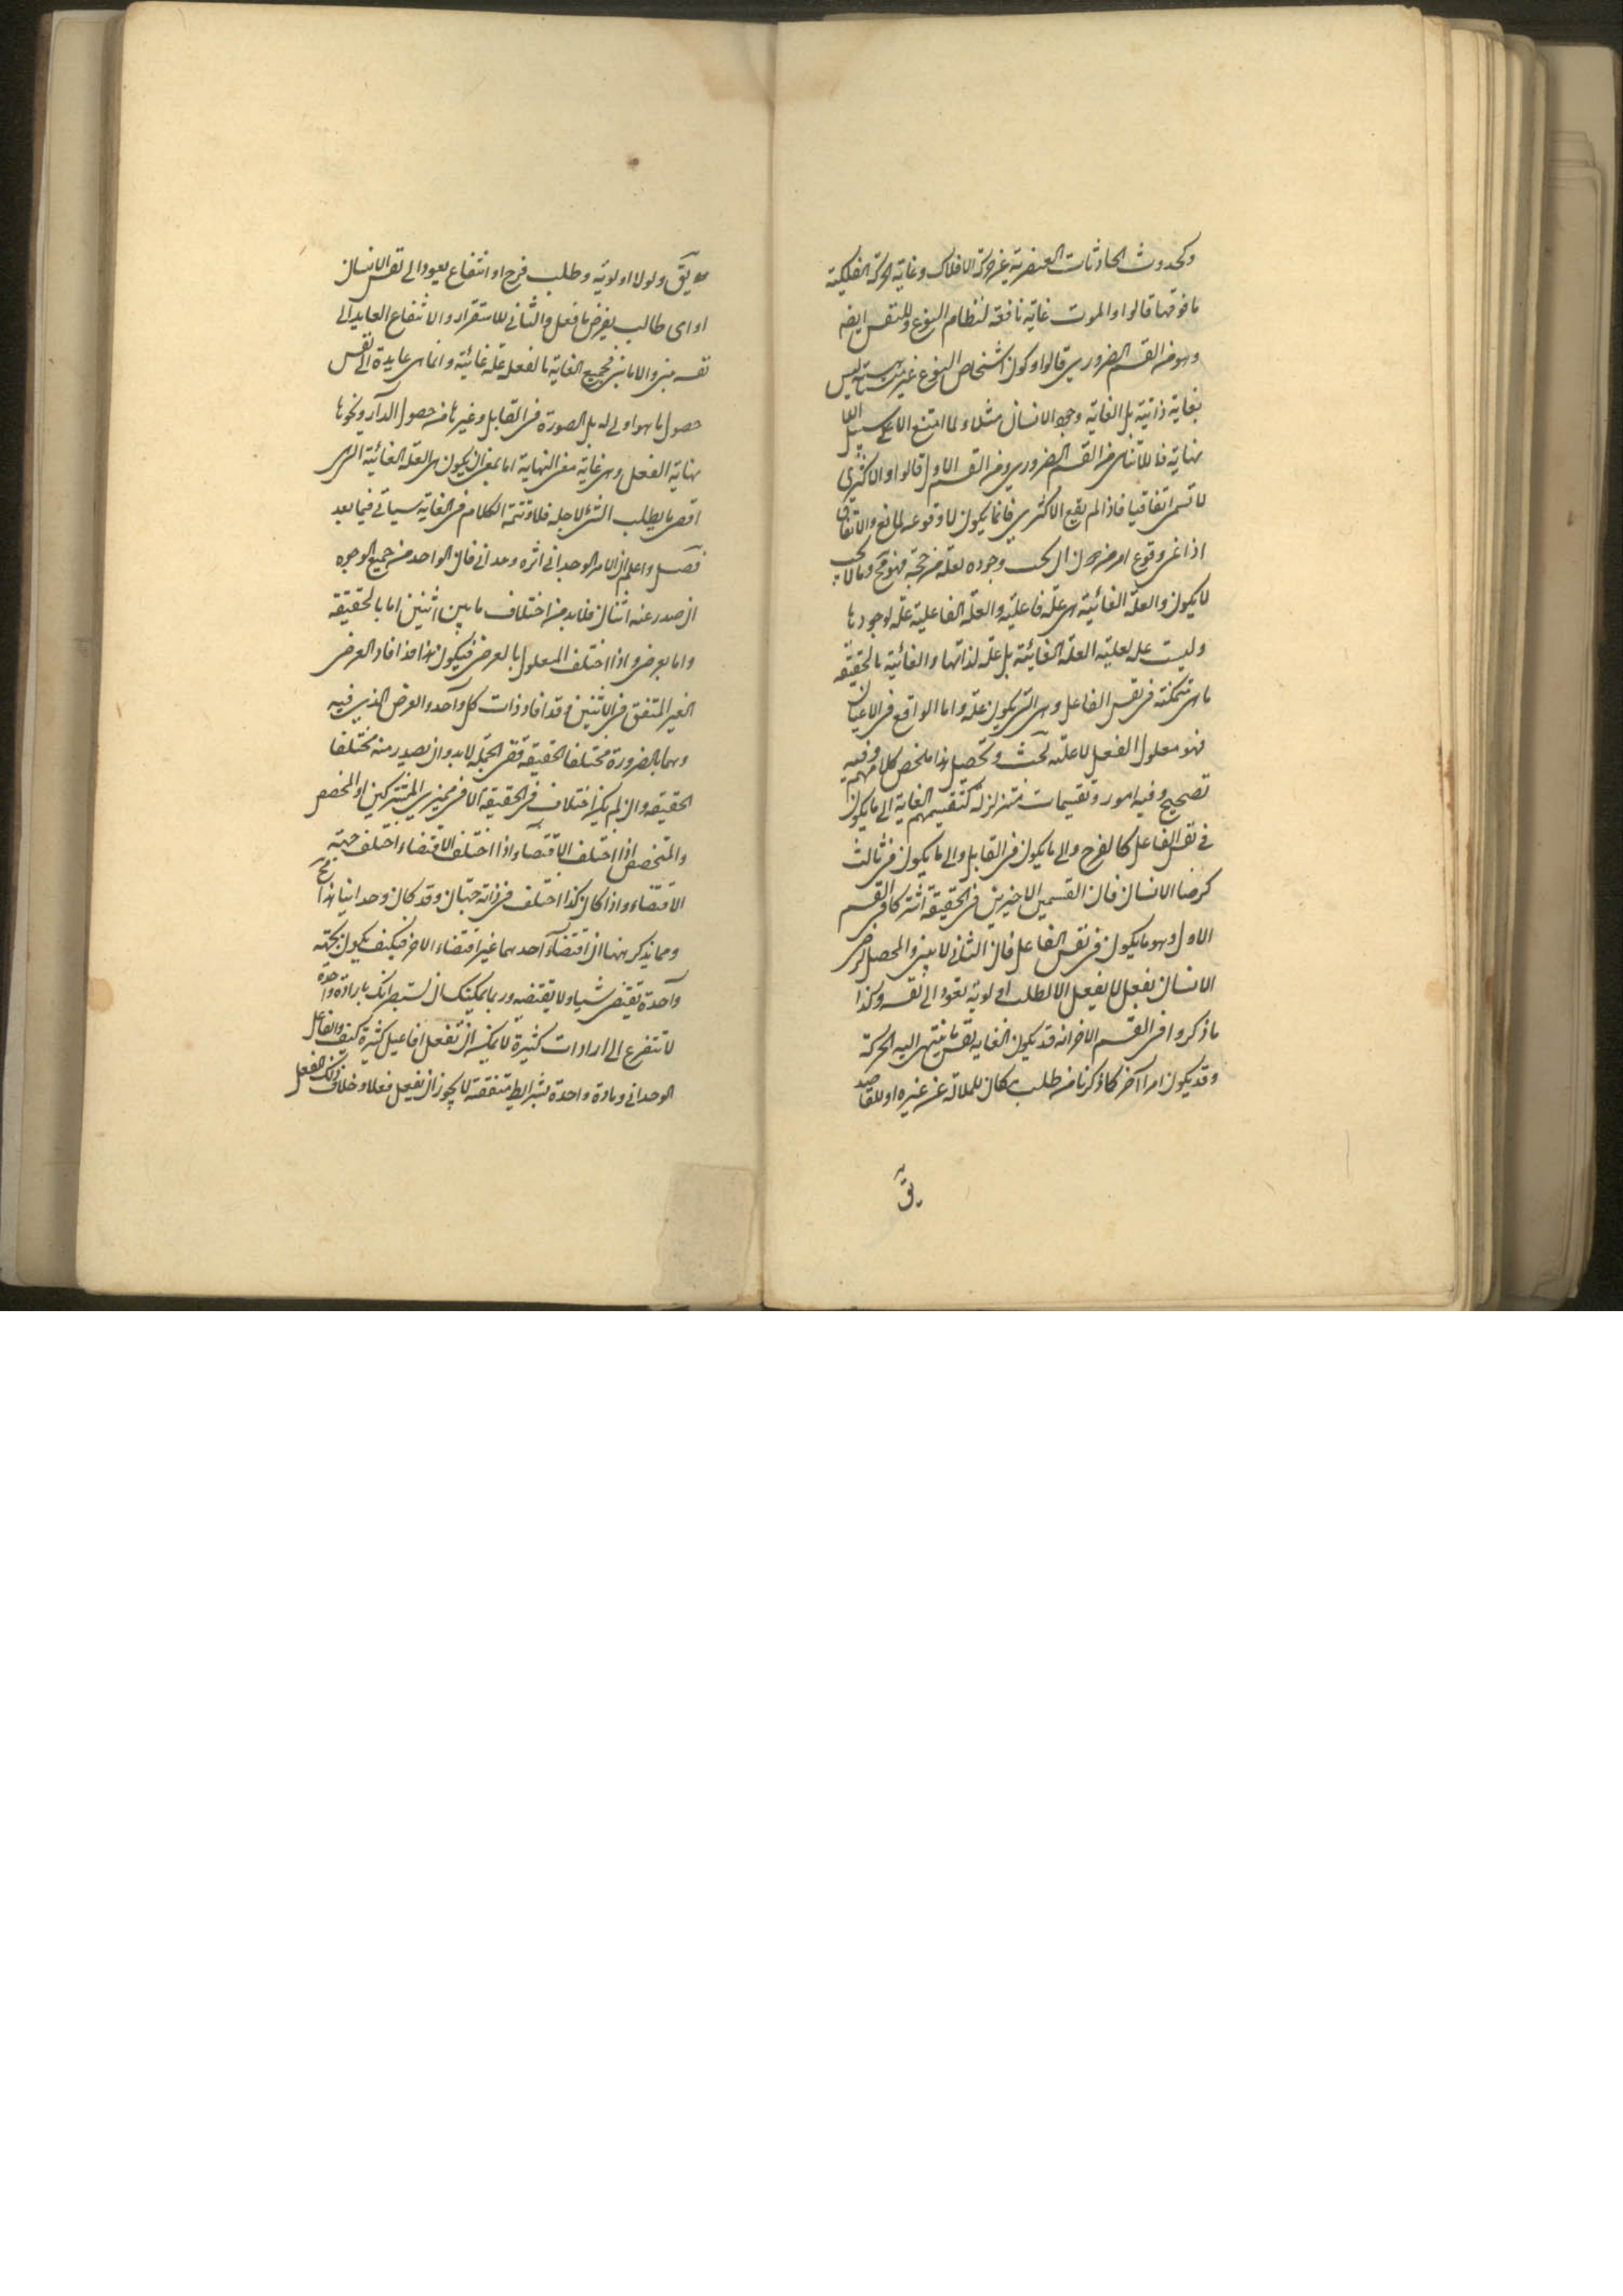 وكحدوث الحادثات العنصرية عن حركة الافلاك وغاية الحركة الفلكية
ما فوقها قالوا والموت غاية نافعة لنظام النوع وللنفس ايضا
وهو من القسم الضروري قالوا وكون اشخاص النوع غير متناهية ليس
بغاية ذاتية بل الغاية وجود الانسان مثلا ولما امتنع الا على سبيل اللا
نهاية فاللاتناهي من القسم الضروري ومن القسم الاول قالوا والاكثري
لا تسمى اتفاقيا فاذا لم يقع الاكثري فانما يكون لا وقوعه لمانع والاتفاق
اذا عن وقوع امر من ان يجب وجوده لعلة مرجحة فهو مح وما لا يجب
لا يكون والعلة الغائية هي علة فاعلية والعلة الفاعلية علة لوجودها
وليست علة لعلية العلة الغائية بل علة لذاتها والغائية بالحقيقة
ما هي متمكنة في نفس الفاعل وهي التي يكون علة واما الواقع في الاعيان
فهو معلول الفعل لا علته بحث وتحصيل هذا ملخص كلامهم وفيه
تصحيح وفيه امور وتقسيمات متزلزلة كتقسيمهم الغاية الى ما يكون
في نفس الفاعل كالفرح والى ما يكون في القابل والى ما يكون في ثالث
كرضا الانسان فان القسمين الاخيرين في الحقيقة اشتركا في القسم
الاول وهو ما يكون في نفس الفاعل فان الثاني لا يبني والمحصل لرضى
الانسان بفعل لا يفعل الا لطلب اولوية تعود الى نفسه وكذا
ما ذكروا في القسم الاخر انه قد يكون الغاية نفس ما ينتهي اليه الحركة
وقد يكون امرا آخر كما ذكرنا من طلب مكان للملالة عن غيره او للقا صديق
يق
يق ولولا اولوية وطلب فرح او انتفاع يعود الى نفس الانسان
او اى طالب يفرض ما فعل والثاني للاستقرار والانتفاع العايد الى
نفسه يبني والا ما بنى فجميع الغاية بالفعل علة غائية وانما هي عايدة الى نفس
حصول ما هو اولى له بل الصورة في القابل وغيرها من حصول الدار ونحوها
نهاية الفعل وهي غاية معنى النهاية اما بمعنى ان يكون هي العلة الغائية التي
اقصى ما يطلب الشئ لاجله فلا وتتمة الكلام في الغاية سيأتي فيما بعد
فصل واعلم ان الامر الوحداني اثره وحداني فان الواحد من جميع الوجوه
ان صدر عنه اثنان فلا بد من اختلاف ما بين اثنين اما بالحقيقة
واما بعرضى واذا اختلف المعلول بالعرضى فيكون هذا قد افاد العرضى
الغير المتفق في الاثنين وقد افاد ذات كل واحد والعرض الذي فيه
وهما بالضرورة مختلفا الحقيقة ففي الجملة لا بد وان يصدر منه مختلفا
الحقيقة وان لم يكن اختلاف في الحقيقة الا في مميزي المشتركين او المخصص
والمتخصص اذا اختلف الاقتضاء واذا اختلف الاقتضاء اختلف جهتة
الاقتضاء واذا كان كذا اختلف في ذاته جهتان وقد كان وحدانيا هذا مح
ومما يذكر ههنا ان اقتضاء احدهما غير اقتضاء الاخر فكيف يكون بجهة
واحدة تقتضي شيا ولا تقتضيه وربما يمكنك ان تستبصر انك بارادة واحدة
لا تتفرع الى ارادات كثيرة لا يمكنك ان تفعل افاعيل كثيرة كيف والفاعل
الوحداني ومادة واحدة بشرايط متفقة لا يجوز ان يفعل فعلا وخلاف ذلك الفعل